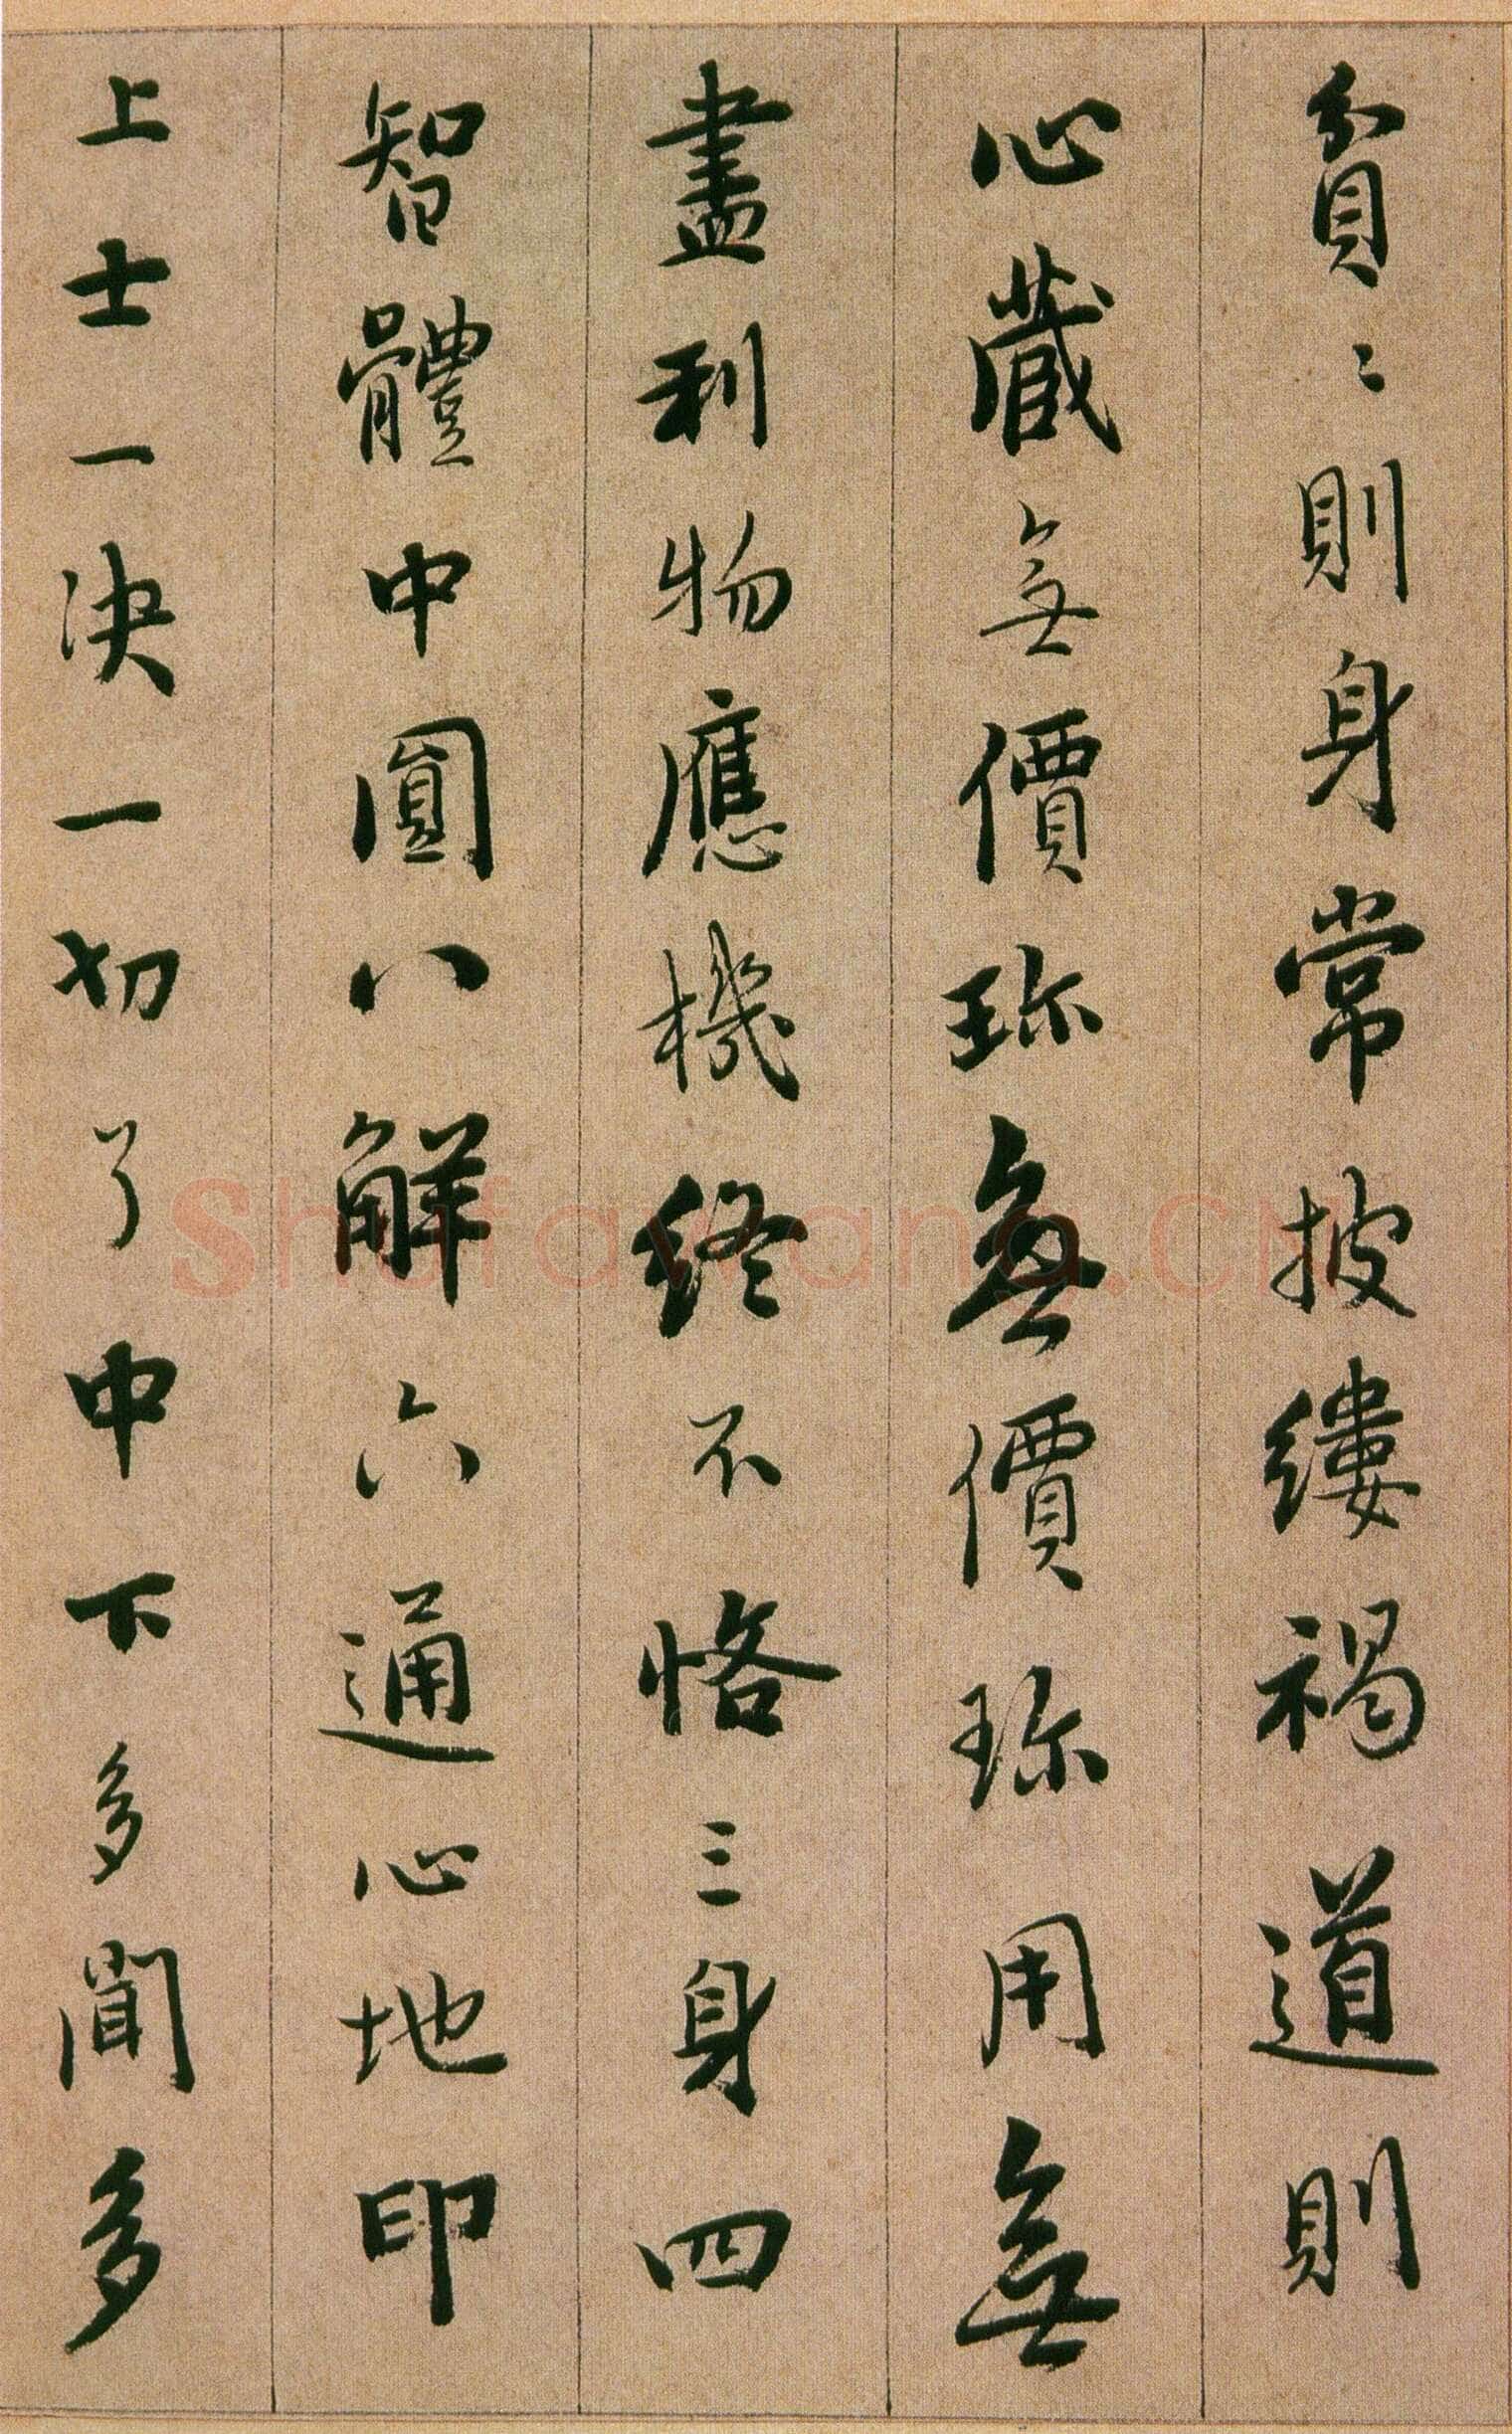 貧〻則身常披縷褐道則
心藏無價珎無價珎用無
盡利物應機終不恡三身四
智體中圓八解六通心地印
上士一決一切了中下多聞多
shufawang.cn